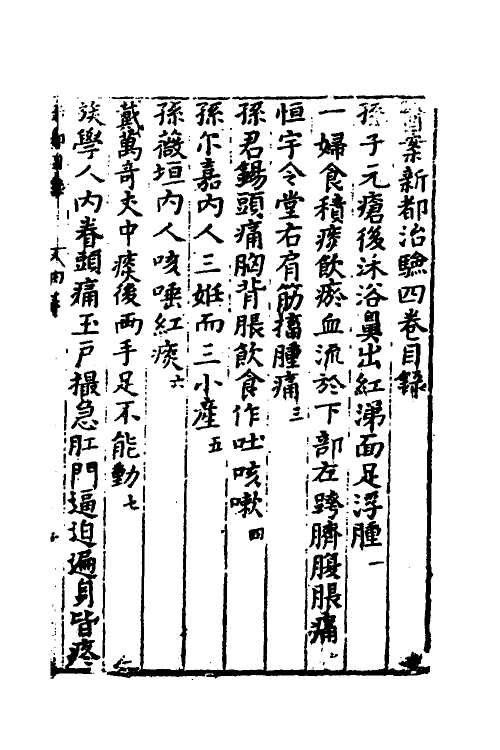 醫案新都治驗四卷目錄
孫子元瘡後沐浴鼻出紅涕面足浮腫一
一婦食積痰飲瘀血流於下部左跨臍腹脹痛二
恒宇令堂右肩筋搐腫痛三
孫君錫頭痛胸背脹飲食作吐咳嗽四
孫尔嘉内人三妊而三小產五
孫薇垣内人咳唾紅痰六
戴萬奇丈中痰後兩手足不能動七
族學人内眷頭痛玉戶撮急肛門逼迫遍身皆疼